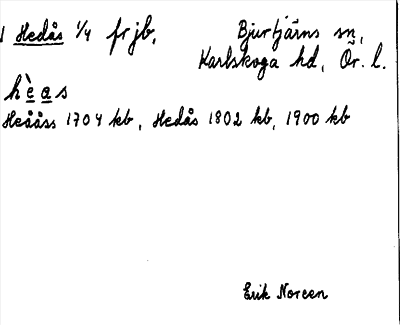 1 Hedås 1/4 frjb, Bjurtjärns sn,
Karlskoga hd, Ör. l.
hèas
Heååss 1704 kb, Hedås 1802 kb, 1900 kb
Erik Noreen